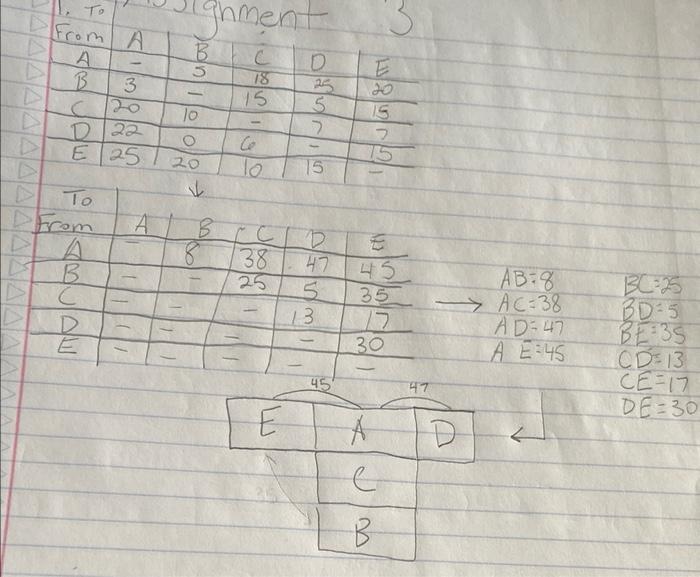 Assignment 3
1. To
From A B C D E
A - 5 18 25 20
B 3 - 15 5 15
C 20 10 - 7 7
D 22 0 6 - 15
E 25 20 10 15 -
↓
To
From A B C D E
A - 8 38 47 45
B - - 25 5 35
C - - - 13 17
D - - - - 30
E - - - - -
→ AB=8 BC=25
AC=38 BD=5
AD=47 BE=35
A E=45 CD=13
CE=17
DE=30
45 47
E A D
C
B